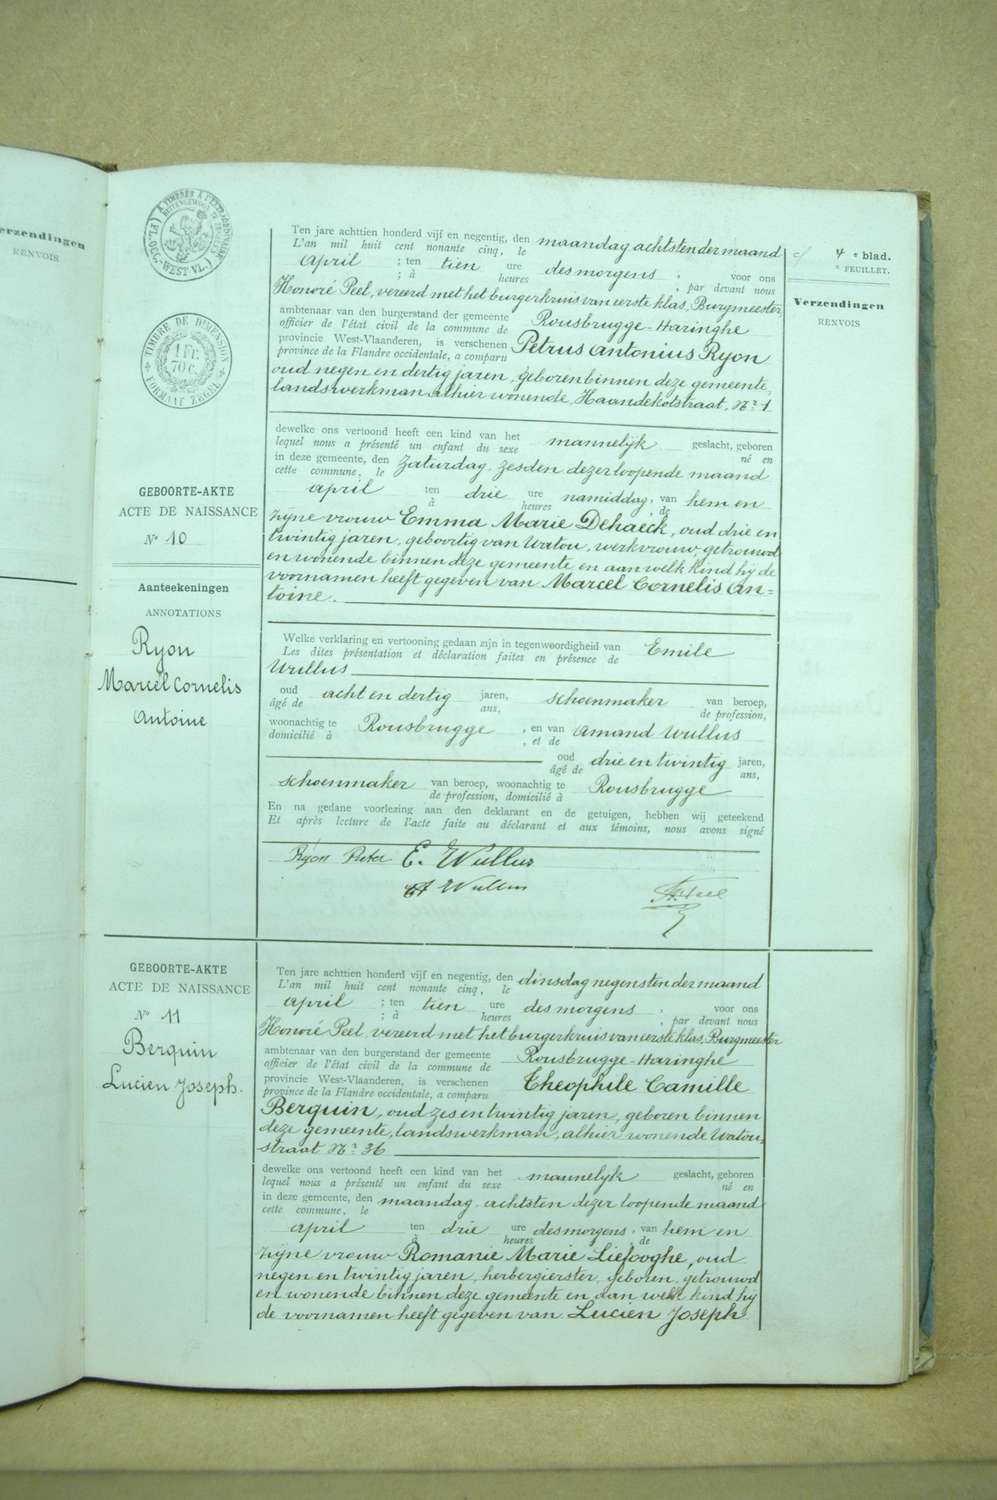 erzendingen
RENVOIS
TIMBRE DE DIMENSION
1 Fr.
70 c.
FORMAAT ZEGEL
4 e blad.
e FEUILLET.
Verzendingen
RENVOIS
GEBOORTE-AKTE
ACTE DE NAISSANCE
No 10
Aanteekeningen
ANNOTATIONS
Ryon
Marcel Cornelis
Antoine
Ten jare achttien honderd vijf en negentig, den maandag achtsten der maand
L'an mil huit cent nonante cinq, le
April ; ten tien ure des morgens ; voor ons
; à heures ; par devant nous
Honoré Peel, vereerd met het burgerkruis van eerste klas, Burgmeester
ambtenaar van den burgerstand der gemeente Rousbrugge-Haringhe
officier de l'état civil de la commune de
provincie West-Vlaanderen, is verschenen Petrus Antonius Ryon
province de la Flandre occidentale, a comparu
oud negen en dertig jaren, geboren binnen deze gemeente,
landswerkman alhier wonende, Haandekotstraat, No 1
dewelke ons vertoond heeft een kind van het mannelyk geslacht, geboren
lequel nous a présenté un enfant du sexe né en
in deze gemeente, den Zaturdag zesden dezer loopende maand
cette commune, le
april ten drie ure namiddag, van hem en
à heures , de
zijne vrouw Emma Marie Dehaeck, oud drie en
twintig jaren, geboortig van Watou, werkvrouw, getrouwd
en wonende binnen deze gemeente en aan welk kind hij de
voornamen heeft gegeven van Marcel Cornelis An=
toine.
Welke verklaring en vertooning gedaan zijn in tegenwoordigheid van Emile
Les dites présentation et déclaration faites en présence de
Wullus
oud acht en dertig jaren, schoenmaker van beroep,
âgé de ans, de profession,
woonachtig te Rousbrugge , en van Amand Wullus
domicilié à , et de
oud drie en twintig jaren,
âgé de ans,
schoenmaker van beroep, woonachtig te Rousbrugge
de profession, domicilié à
En na gedane voorlezing aan den deklarant en de getuigen, hebben wij geteekend
Et après lecture de l'acte faite au déclarant et aux témoins, nous avons signé
Ryon Pieter E. Wullus
A Wullus
Peel
GEBOORTE-AKTE
ACTE DE NAISSANCE
No 11
Berquin
Lucien Joseph.
Ten jare achttien honderd vijf en negentig, den dinsdag negensten der maand
L'an mil huit cent nonante cinq, le
april ; ten tien ure des morgens ; voor ons
; à heures ; par devant nous
Honoré Peel, vereerd met het burgerkruis van eerste klas, Burgmeester
ambtenaar van den burgerstand der gemeente Rousbrugge-Haringhe
officier de l'état civil de la commune de
provincie West-Vlaanderen, is verschenen Theophile Camille
province de la Flandre occidentale, a comparu
Berquin, oud zes en twintig jaren, geboren binnen
deze gemeente, landswerkman, alhier wonende Watou-
straat No 36
dewelke ons vertoond heeft een kind van het mannelyk geslacht, geboren
lequel nous a présenté un enfant du sexe né en
in deze gemeente, den maandag achtsten dezer loopende maand
cette commune, le
april ten drie ure des morgens, van hem en
à heures , de
zijne vrouw Romanie Marie Liefooghe, oud
negen en twintig jaren, herbergierster, geboren, getrouwd
en wonende binnen deze gemeente en aan welk kind hij
de voornamen heeft gegeven van Lucien Joseph